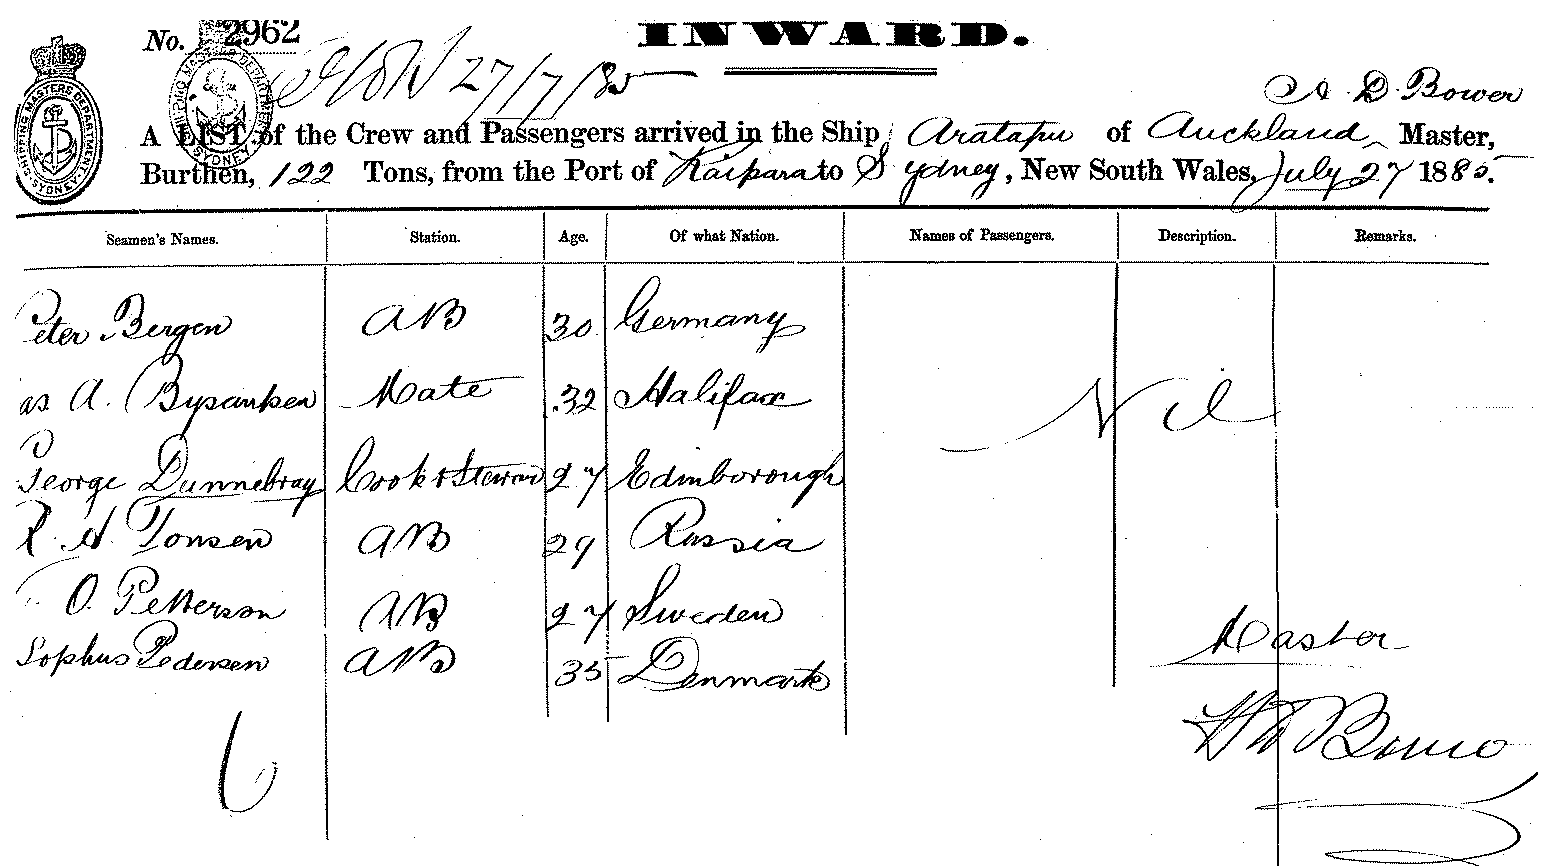 No. 2962
INWARD.
27/7/85
A D. Bower
A LIST of the Crew and Passengers arrived in the Ship Aratapu of Auckland, Master,
Burthen, 122 Tons, from the Port of Kaipara to Sydney, New South Wales, July 27 1885.
SHIPPING MASTERS DEPARTMENT SYDNEY
Seamen's Names. Station. Age. Of what Nation. Names of Passengers. Description. Remarks.
Peter Bergen AB 30 Germany
as A. Mate 32 Halifax Nil
George Cook & Steward 27 Edinborough
A. Tonsen AB 29 Russia
O. Petterson AB 27 Sweden
Sophus Pedersen AB 35 Denmark
Master
6